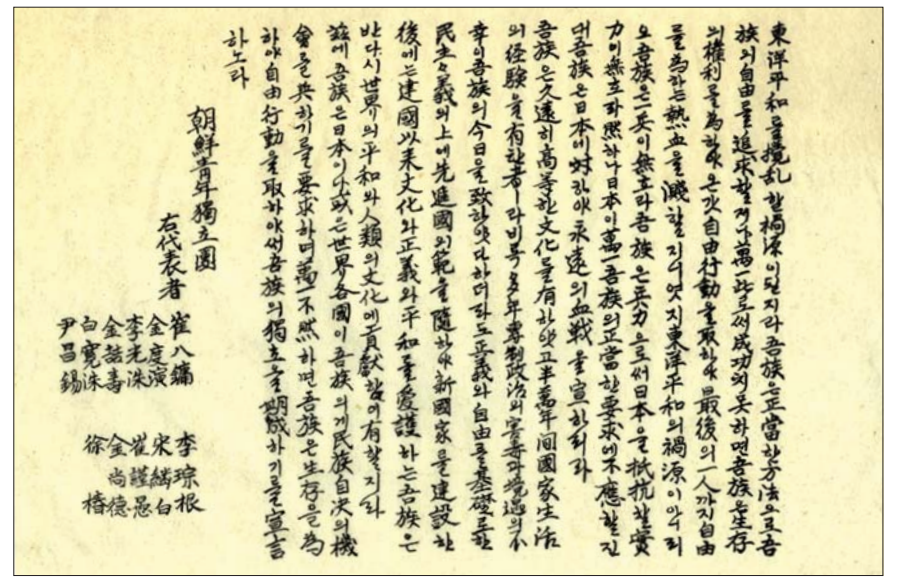 東洋平和를攪乱할禍源이될지라吾族은正當한方法으로吾
族의自由를追求할지나萬一此로써成功치못하면吾族은生存
의權利를爲하야온갓自由行動을取하야最後의一人까지自由
를爲하는熱血을濺할지니엇지東洋平和의禍源이아니리
오吾族은一兵이無호라吾族은兵力으로써日本을抵抗할實
力이無호라然하나日本이萬一吾族의正當한要求에不應할진
대吾族은日本에対하야永遠의血戦을宣하리라
吾族은久遠히高等한文化를有하얏고半萬年間國家生活
의経験을有한者라비록多年專制政治의害毒과境遇의不
幸이吾族의今日을致하얏다하더라도正義와自由를基礎로한
民主々義의上에先進國의範을隨하야新國家를建設한
後에는建國以来文化와正義와平和를愛護하는吾族은
반다시世界의平和와人類의文化에貢獻함이有할지라
玆에吾族은日本이나或은世界各國이吾族의게民族自決의機
會를與하기를要求하며萬一不然하면吾族은生存을為
하야自由行動을取하야써吾族의獨立을期成하기를宣言
하노라
朝鮮青年獨立團
右代表者
崔八鏞 李琮根
金度演 宋繼白
李光洙 崔謹愚
金喆壽 金尚德
白寬洙 徐椿
尹昌錫